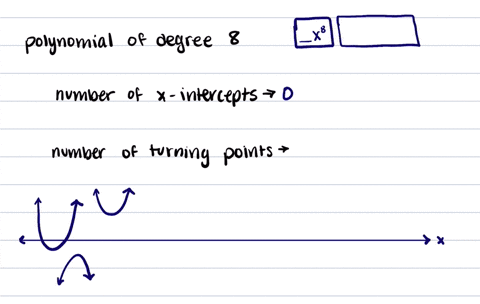 polynomial of degree 8 _x⁸
number of x-intercepts → 0
number of turning points →
x